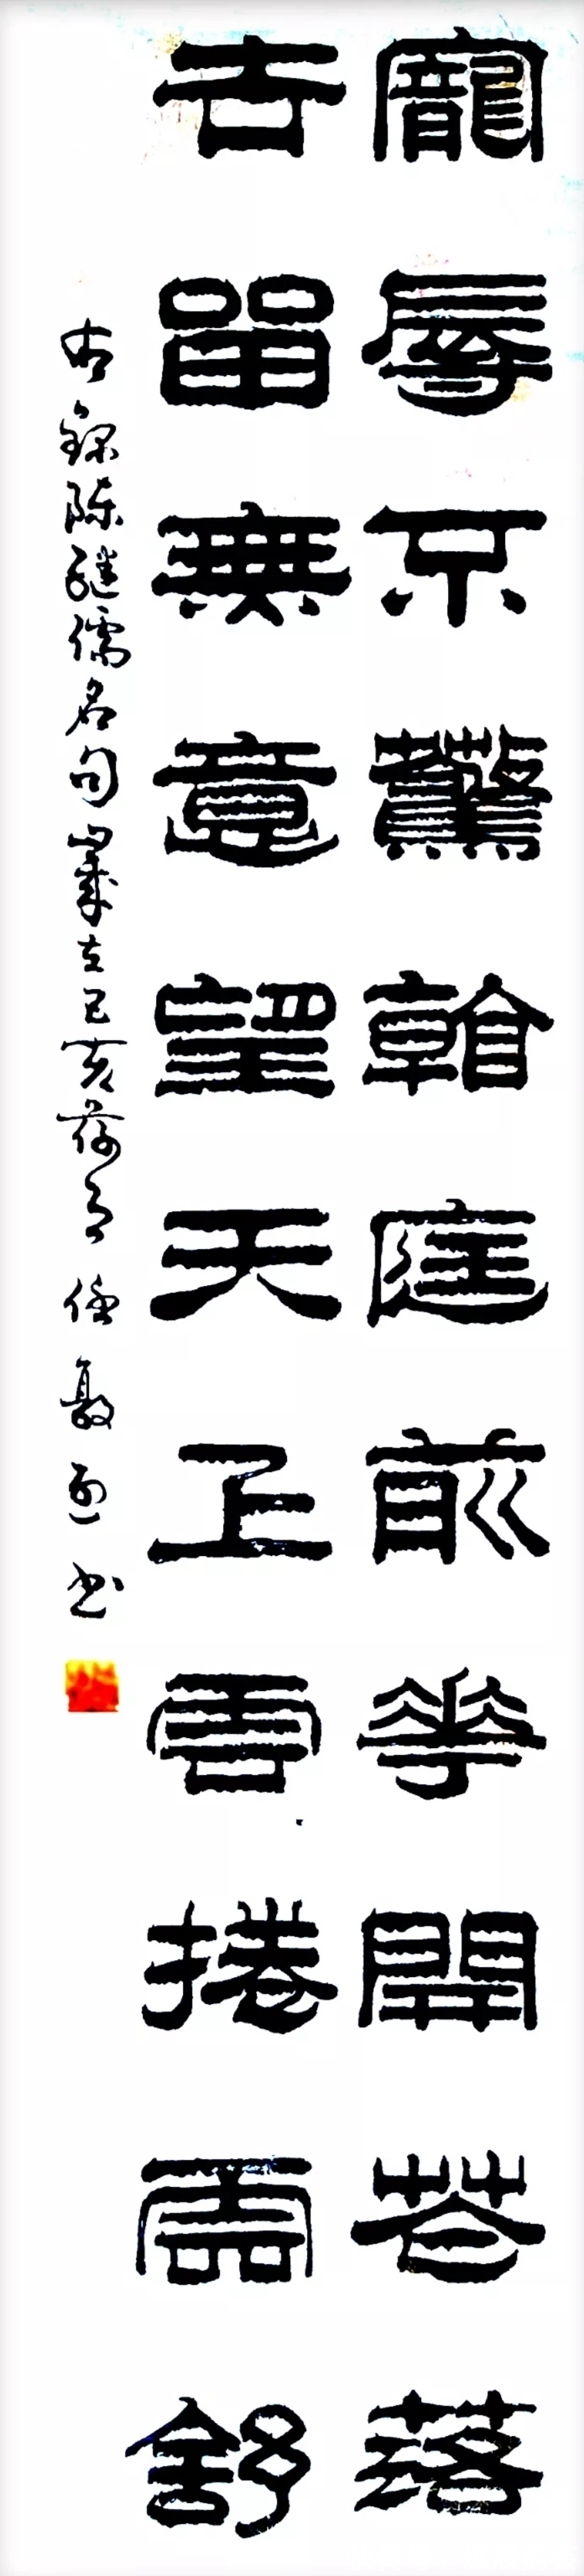 寵辱不驚看庭前華開花落
去留無意望天上雲捲雲舒
右錄陳繼儒名句歲在己亥荷月任书